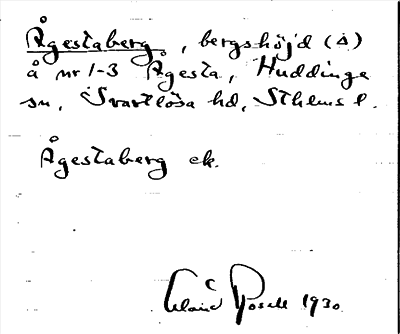 Ågestaberg, bergshöjd (△)
å nr 1-3 Ågesta, Huddinge
sn, Svartlösa hd, Sthlms l.
Ågestaberg ek.
Erland Rosell 1930